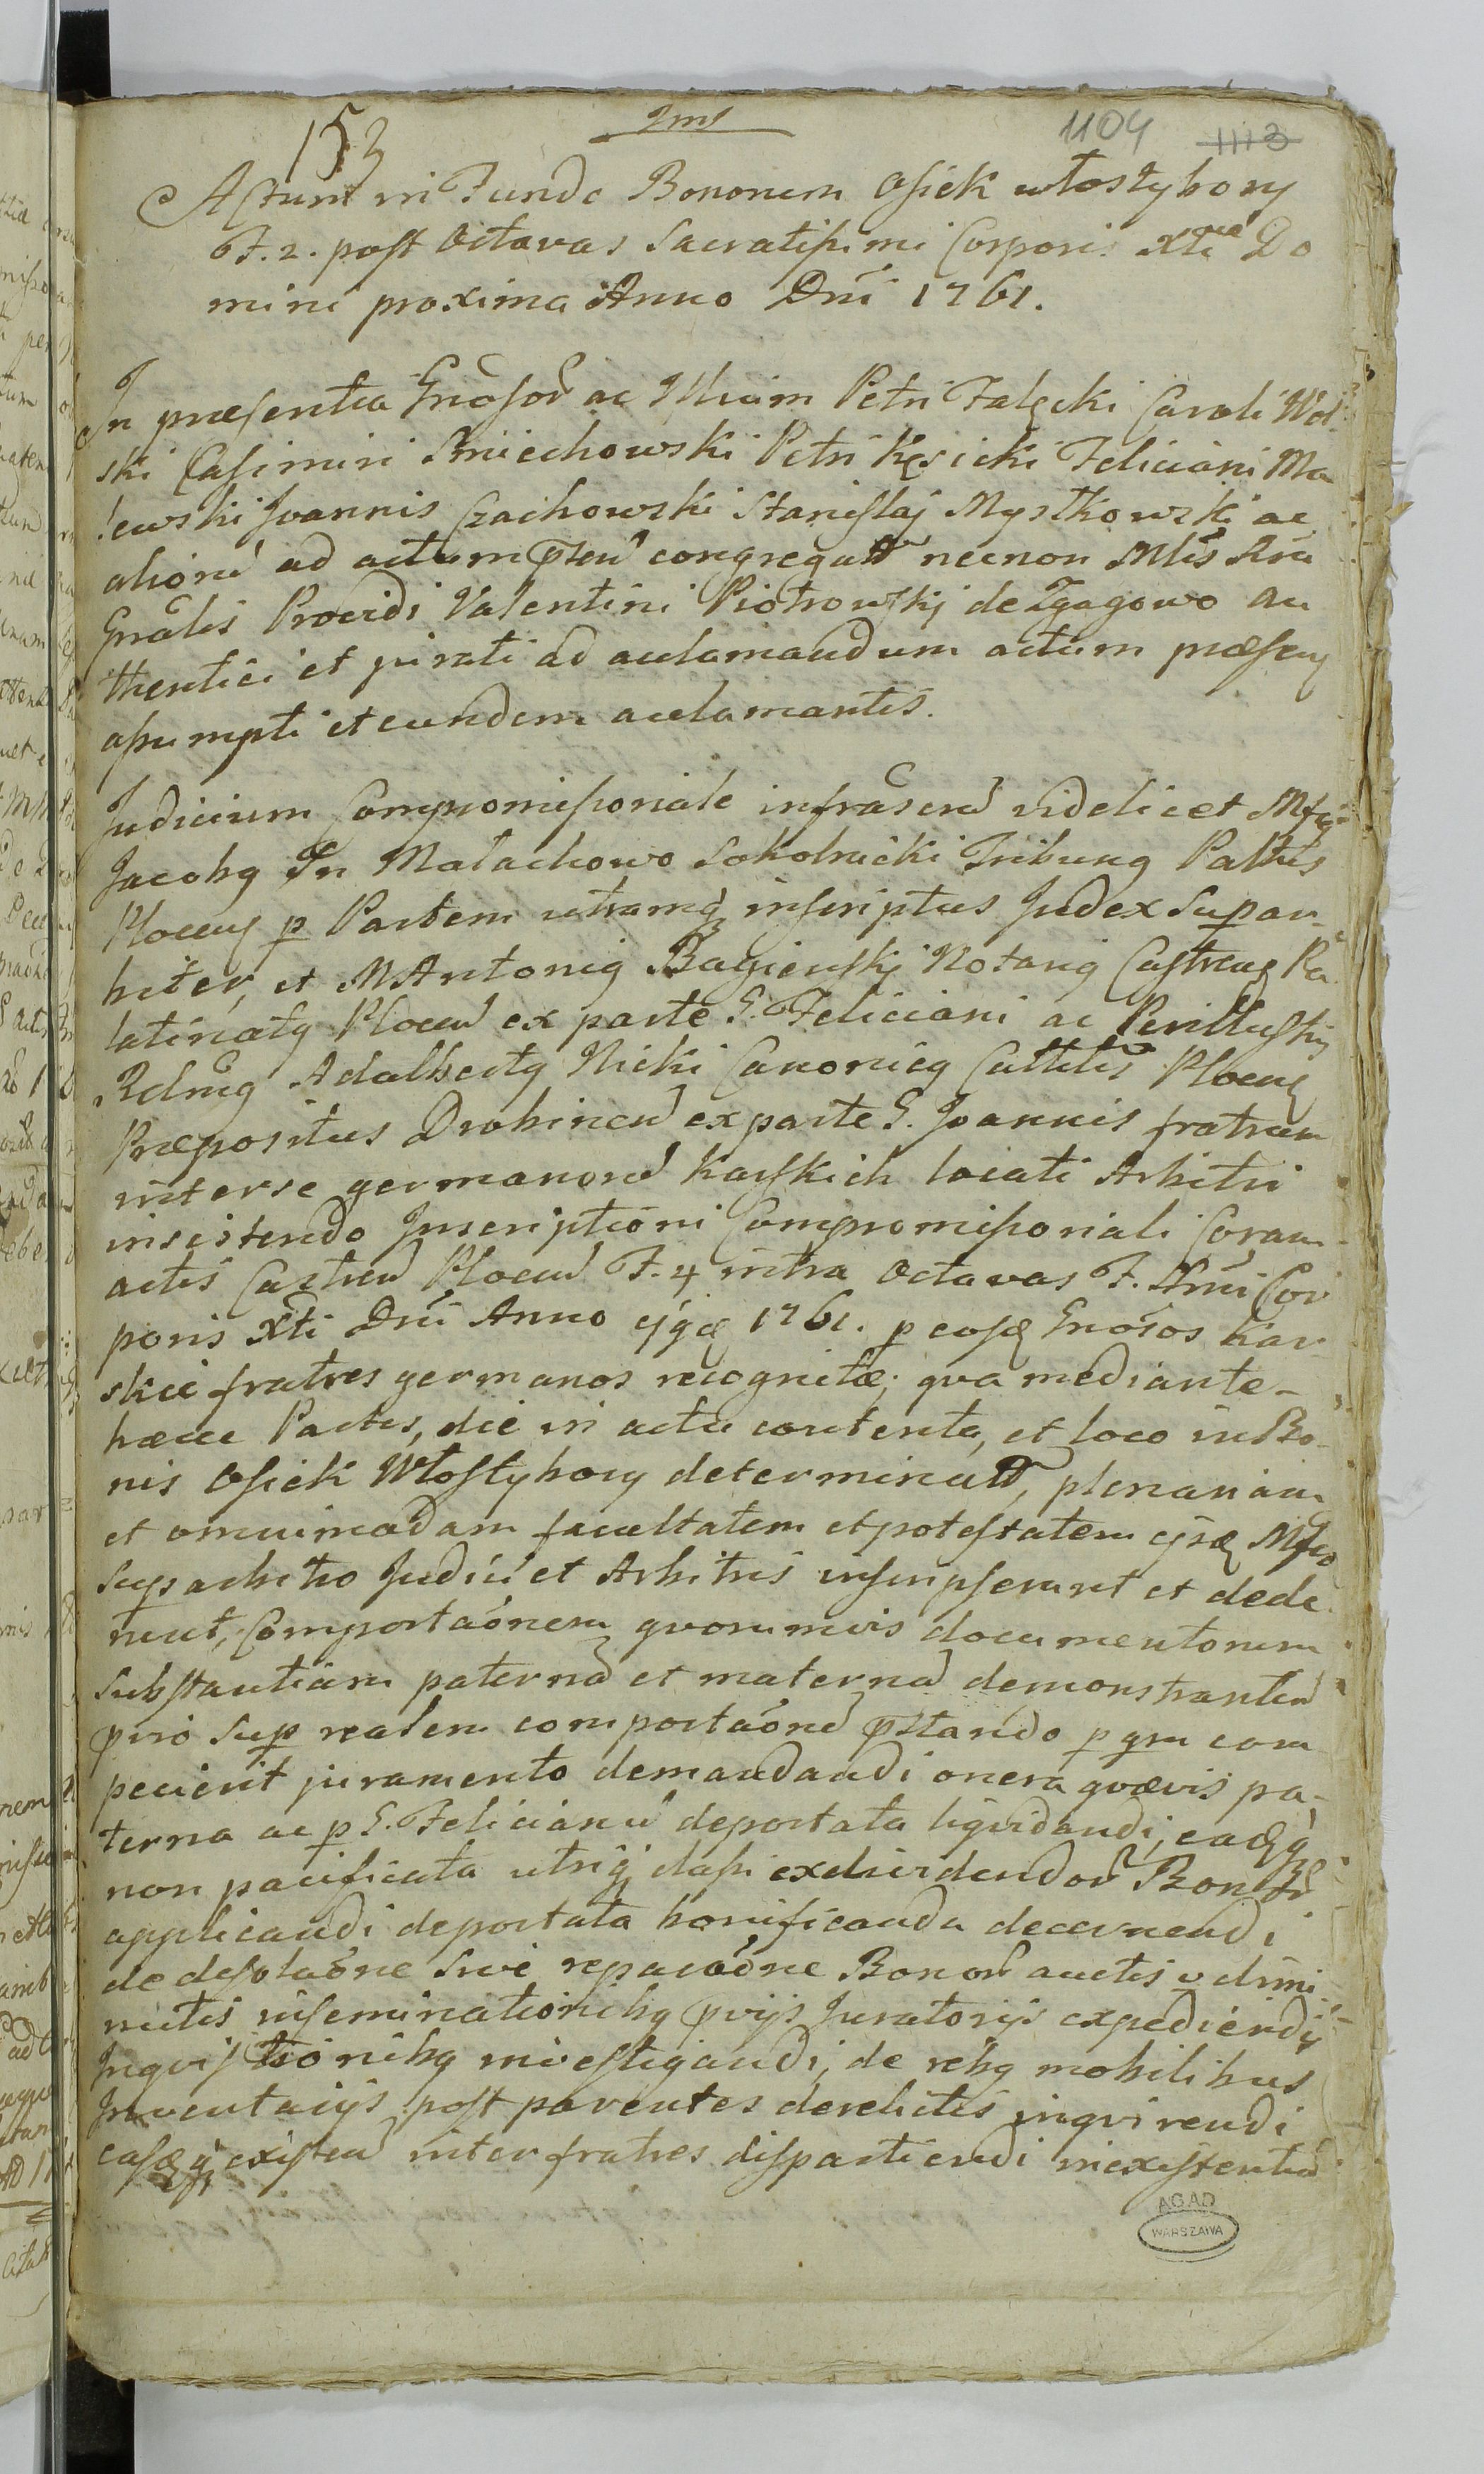 153 Ims 1104 1113
Actum in Fundo Bonorum Osiek włostybory
F. 2. post Octavas Sacratissimi Corporis Xti Do
mini proxima Anno Dni 1761.
In præsentia Gnosor ac Illium Petri Falęcki Caroli Wol
ski Casimiri Smiechowski Petri Kęsicki Feliciani Ma
lewski Joannis Czachowski Stanislaj Mystkowski ac
alioru ad actum pnsen congregat necnon Mlis Rni
Gnalis Providi Valentini Piotrowskj de Zgagowo au
thentici et jurati ad acclamandum actum præseng
assumpti et eundem acclamantis.
Judicium Compromissoriale infrascrd videlicet Mfus
Jacobg In Małachowo Sokolnicki Tribung Paltus
Plocens p Partem utramq inscriptus Judex Supar
biter, et M Antonig Bagienskj Notarig Castreng Pa
latinatg Plocen ex parte G. Feliciani ac Perillustris
Rdmg Adalbertg Nicki Canonicg Cathlis Plocens
Præpositus Drobinen ex parte G. Joannis fratrum
inter se germanoru Karskich locati Arbitri
insistendo Inscriptioni Compromissoriali Coram
actis Castren Plocen F. 4 intra Octavas F. Smi Cor
poris Xti Dni Anno ejgd 1761. p eosd Gnosos Kar
skie fratres germanos recognitæ; qva mediante
hæcce Partes, die in actu contenta, et loco in Bo
nis Osiek Włostybory determinatt, plenariam
et omnimodam facultatem et potestatem ejsd Mfco
Suparbitro Judici et Arbitris inscripserunt et dede
runt, Comportaonem qvorumvis documentorum
substantiam paternd et maternd demonstrantiu
prio sup realem comportaone pstando p qm com
pecierit juramento demandandi onera qvævis pa
terna ac p G. Felicianu deportata liqvidandi, eadq
non pacificata utriq dassi excludendor Bonor
applicandi deportata bonificanda decernendi
de desolaone sive reparaone Bonor auctis v dimi
nutis inseminationibg prijs Juratorijs expediendis
Inqvisitionibg investigandi, de rebg mobilibus
Inventarijs post parentes derelictis inqvirendi
easdq existen inter fratres dispartiendi inexistentiu
AGAD
WARSZAWA